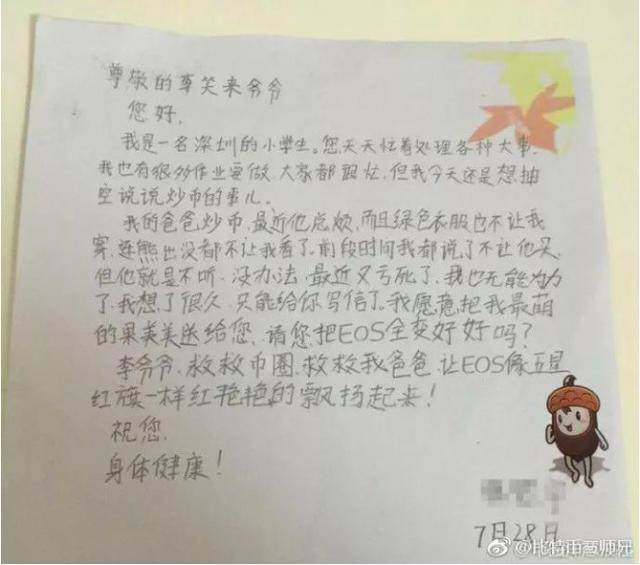 尊敬的李笑来爷爷
您好,
我是一名深圳的小学生。您天天忙着处理各种大事,
我也有很多作业要做,大家都跟忙,但我今天还是想抽
空说说炒币的事儿。
我的爸爸炒币,最近他总烦,而且绿色衣服也不让我
穿,连熊出没都不让我看了,前段时间我都说了不让他买,
但他就是不听,没办法,最近又亏死了,我也无能为力
了,我想了很久,只能给你写信了。我愿意把我最萌
的果美美送给您,请您把EOS全变好好吗?
李爷爷,救救币圈,救救我爸爸,让EOS像五星
红旗一样红艳艳的飘扬起来!
祝您,
身体健康!
7月28日
@比特币意师兄